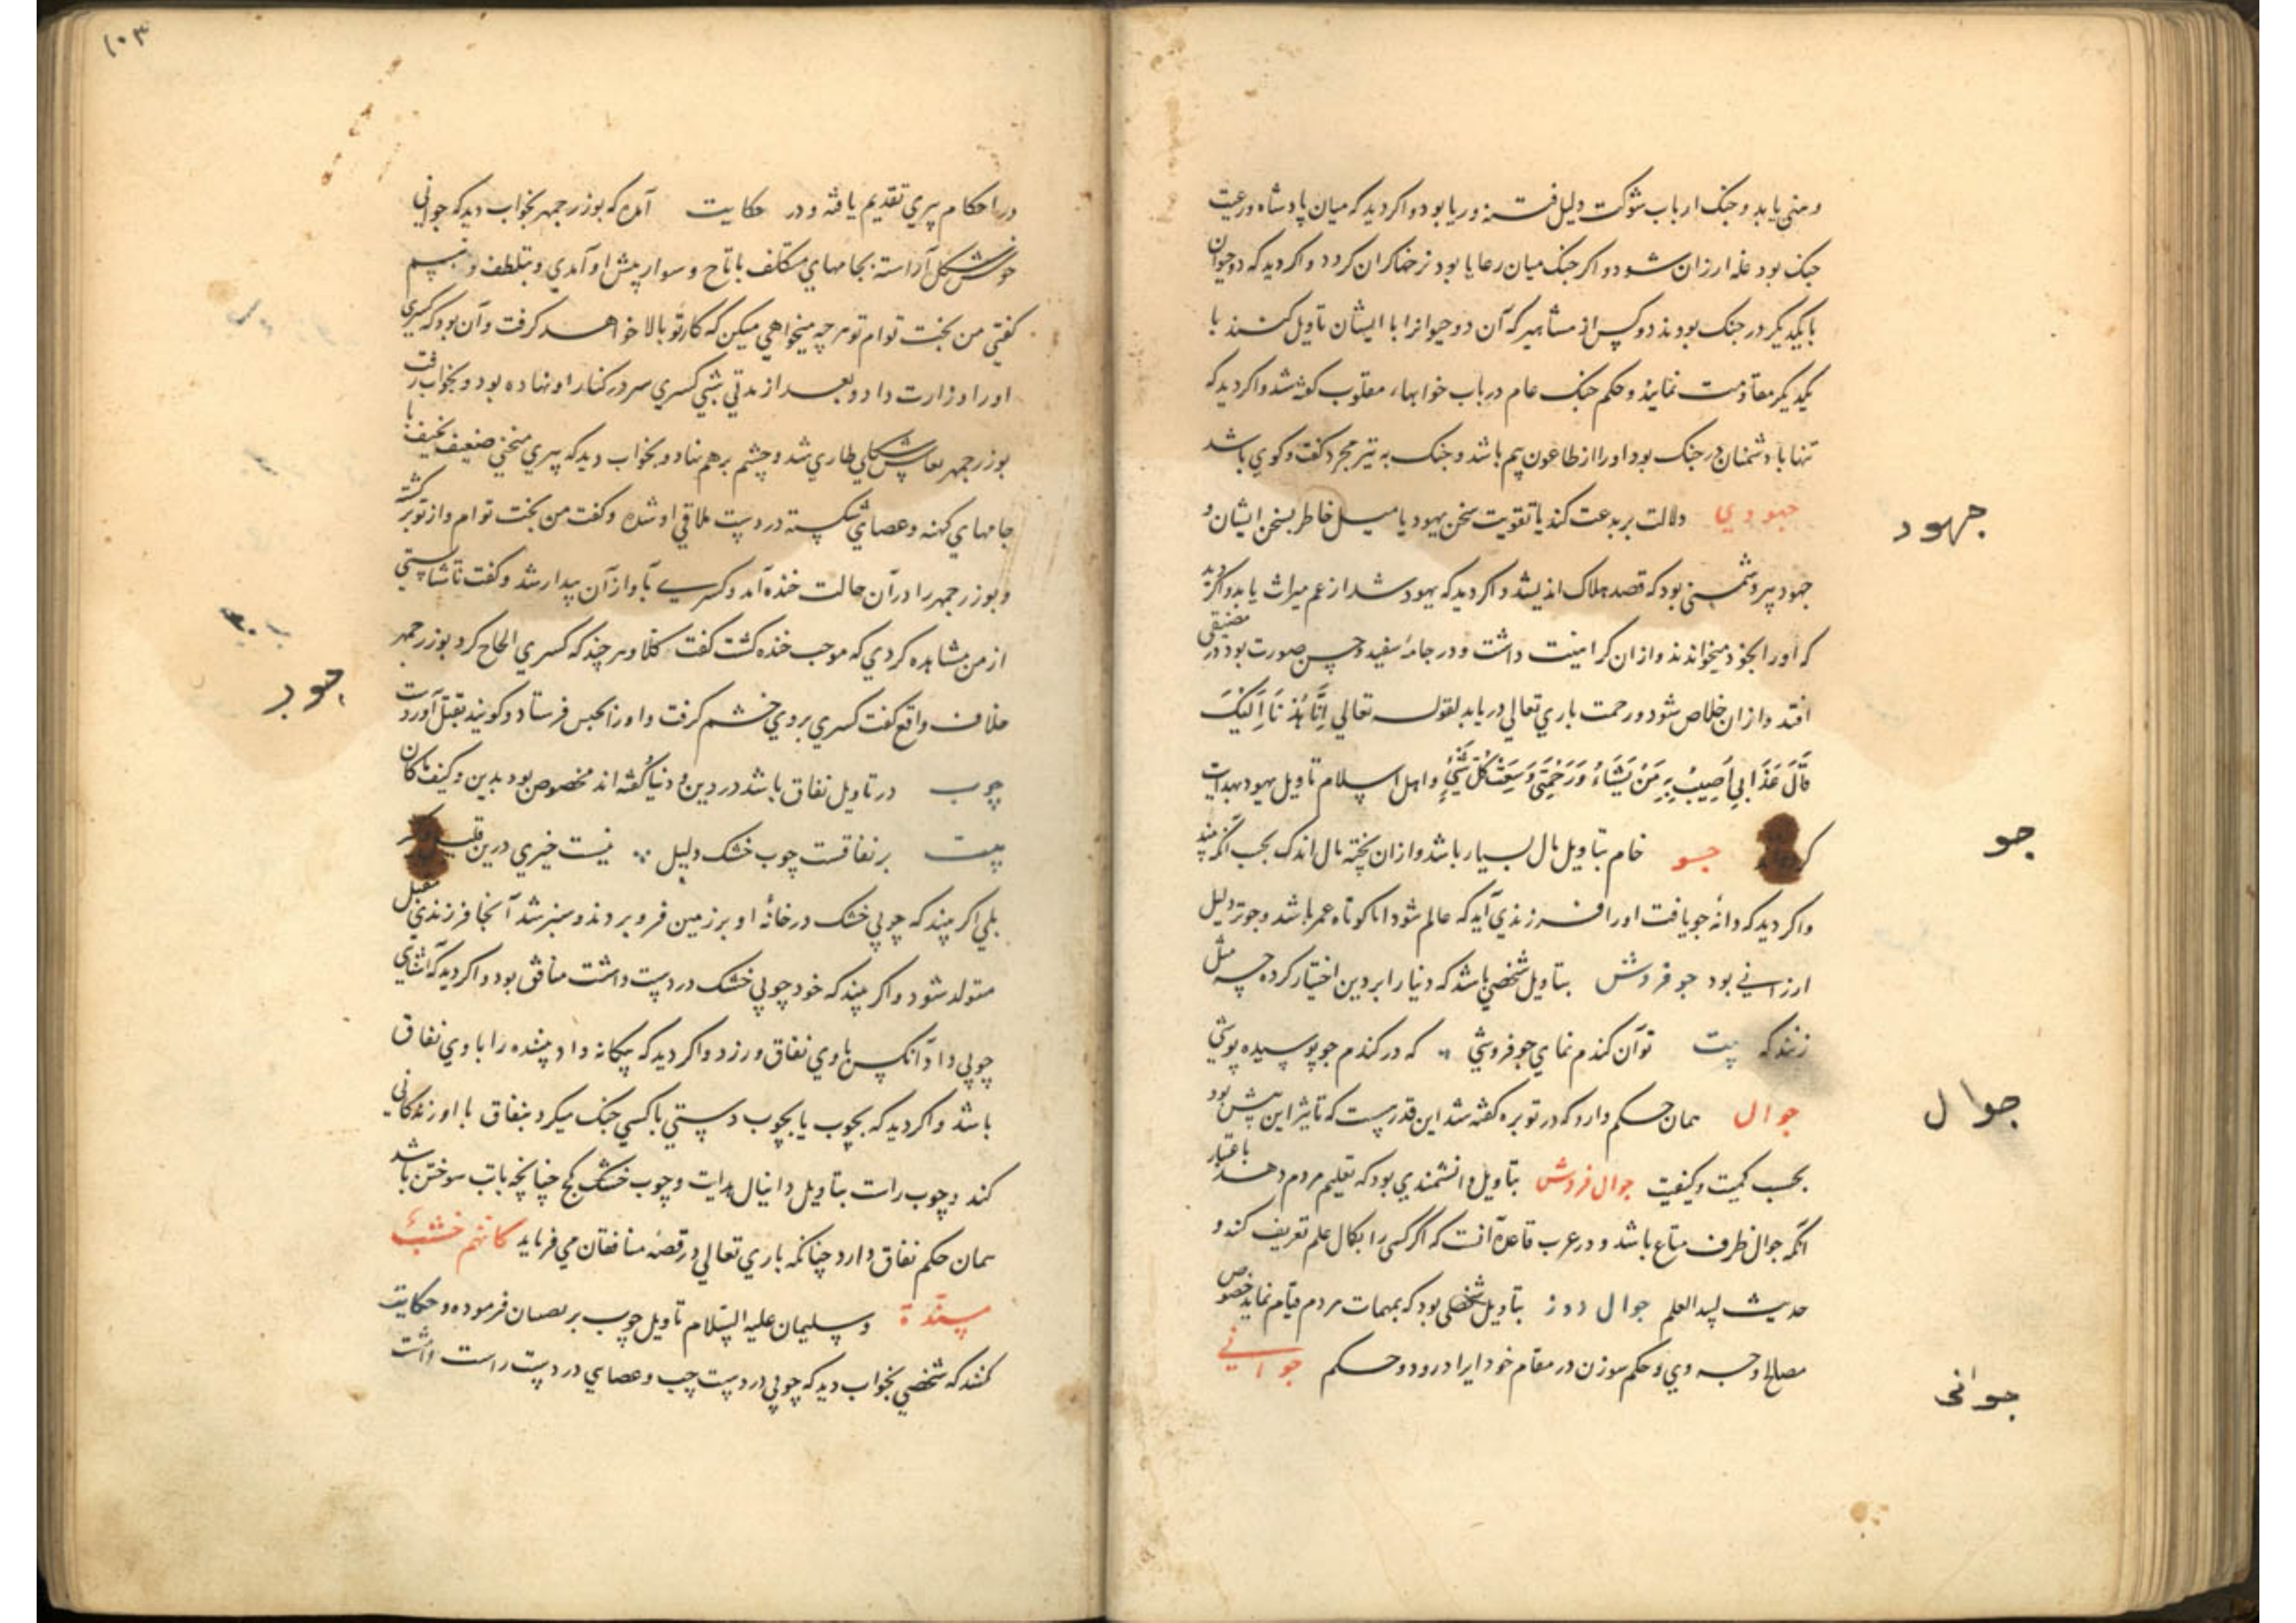 و منی یابد و جنک ارباب شوکت دلیل فتنه و ریا بود و اکر دید که میان پادشاه و رعیت
جنک بود غله ارزان شود و اکر جنک میان رعایا بود نرخها کران کردد و اکر دید که دو حیوان
بایکدیکر در جنک بودند دو کس از مشاهیر که آن دو حیوانرا با ایشان تاویل کنند با
یکدیکر مقاومت نمایند و حکم جنک عام در باب خوابهاء مقلوب کفته شد و اکر دید که
تنها با دشمنان در جنک بود او را از طاعون بیم باشد و جنک به تیر مجرد کفت و کوی باشد
جهودی دلالت بر بدعت کند یا تقویت سخن یهود یا میل خاطر بسخن ایشان و
جهود پیر دشمنی بود که قصد هلاک اندیشد و اکر دید که یهود شد از عم میراث یابد و اکر دید
که او را بخود میخواندند و از ان کراهیت داشت و در جامه سفید و حسن صورت بود در مضیقی
افتد و از ان خلاص شود و رحمت باری تعالی دریابد لقوله تعالی اِنَّا هُدْنَا اِلَیْکَ
قَالَ عَذَابِی اُصِیبُ بِهِ مَنْ یَشَاءُ وَ رَحْمَتِی وَسِعَتْ کُلَّ شَیْءٍ و اهل اسلام تاویل یهود بهدایت
جهود
جو خام بتاویل مال بسیار باشد و از ان پخته مال اندک بحسب آنکه بیند
جو
و اکر دید که دانهٔ جو یافت او را فرزندی آید که عالم شود اما کوتاه عمر باشد و جو تر دلیل
ارزانی بود جو فروش بتاویل شخصی باشد که دنیا را بر دین اختیار کرده چه مثل
زنند که بیت تو آن کندم نمای جو فروشی که در کندم جو پوسیده پوشی
جوال همان حکم دارد که در توبره کفته شد این قدر هست که تاثیر این بیش بود
جوال
بحسب کمیت و کیفیت جوال فروش بتاویل دانشمندی بود که تعلیم مردم دهد باعتبار
آنکه جوال ظرف متاع باشد و در عرب قاعده آنست که اکر کسی را بکمال علم تعریف کند و
حدیث العلم جوال دوز بتاویل شخصی بود که بمهمات مردم قیام نماید خصوص
مصالح وی و حکم سوزن در مقام خود ایراد رود و حکم جوانی
جوانی
۱۰۳
در احکام پیری تقدیم یافته و در حکایت آمده که بوزرجمهر بخواب دید که جوانی
خوش شکل آراسته بجامهای متکلف با تاج و سوار پیش او آمدی و بتلطف و تبسم
کفتی من بخت توام تو هر چه میخواهی میکن که کار تو بالا خواهد کرفت و آن بود که کسری
او را وزارت داد و بعد از مدتی شبی کسری سر در کنار او نهاده بود و بخواب رفت
بوزرجمهر طاری شد و چشم بر هم نهاد و بخواب دید که پیری منحنی ضعیف نحیف با
جامهای کهنه و عصای شکسته در دست ملاقی او شده و کفت من بخت توام و از تو بر کشته
و بوزرجمهر را در آن حالت خنده آمد و کسری بآواز آن بیدار شد و کفت
از من مشاهده کردی که موجب خنده کشت کفت کلا و هر چند که کسری الحاح کرد بوزرجمهر
خلاف واقع کفت کسری بر وی خشم کرفت و او را بحبس فرستاد و کویند بقتل آورد
چوب
چوب در تاویل نفاق باشد در دین و دنیا کفته اند مخصوص بود بدین و کیف ما کان
بیت بر نفاقست چوب خشک دلیل نیست خیری درین
بلی اکر بیند که چوبی خشک در خانهٔ او بر زمین فرو بردند و سبز شد آنجا فرزندی مقبل
متولد شود و اکر بیند که خود چوبی خشک در دست داشت منافق بود و اکر دید که آشنای
چوبی داد آنکس با وی نفاق ورزد و اکر دید که بیکانه داد بیننده را با وی نفاق
باشد و اکر دید که بچوب یا بچوب دستی با کسی جنک میکرد بنفاق با او زندکانی
کند و چوب راست بتاویل دانیال هدایت و چوب خشک کج چنانچه باب سوختن باشد
همان حکم نفاق دارد چنانکه باری تعالی در قصه منافقان می فرماید کانهم خشب
مسندة و سلیمان علیه السلام تاویل چوب فرموده و حکایت
کنند که شخصی بخواب دید که چوبی در دست چپ و عصای در دست راست داشت